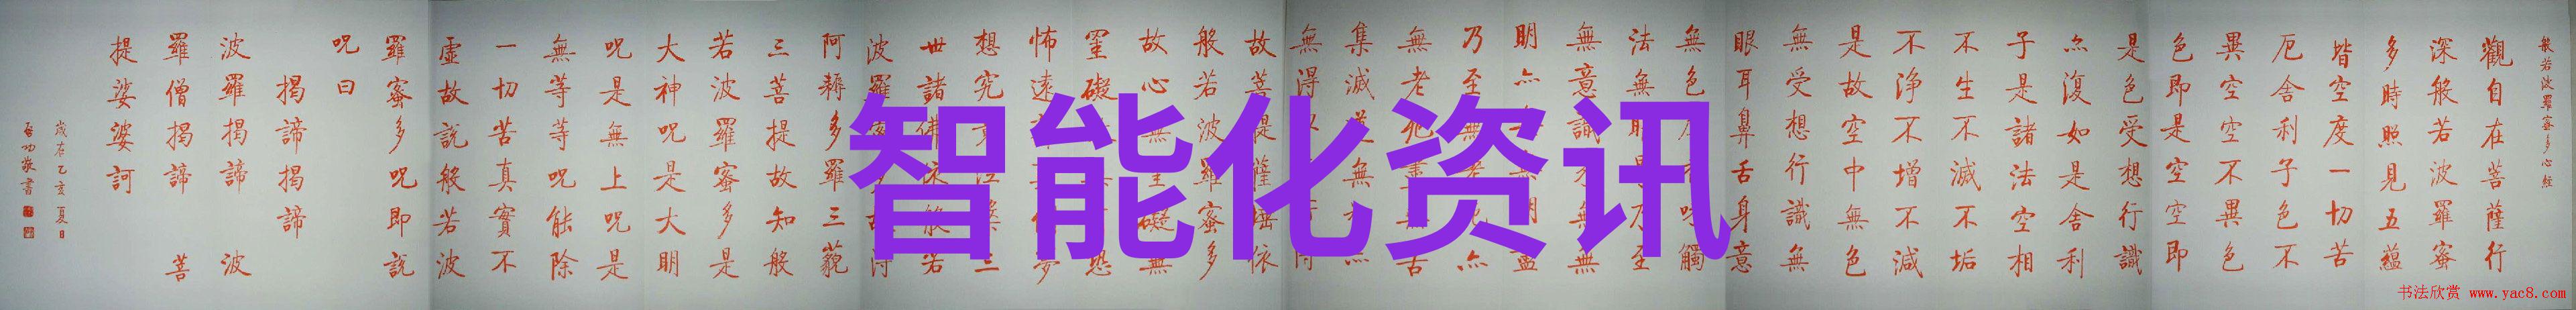 般若波羅蜜多心經
觀自在菩薩行
深般若波羅蜜
多時照見五蘊
皆空度一切苦
厄舍利子色不
異空空不異色
色即是空空即
是色受想行識
亦復如是舍利
子是諸法空相
不生不滅不垢
不淨不增不減
是故空中無色
無受想行識無
眼耳鼻舌身意
無色味觸
法無眼乃至
無意識無無
明亦無明盡
乃至無老死亦
無老死盡無苦
集滅道無亦
無得以得
故菩提薩埵依
般若波羅蜜多
故心無罣礙無
罣礙恐
怖遠夢
想究竟涅槃三
世諸佛依般若
波羅蜜多故得
阿耨多羅三藐
三菩提故知般
若波羅蜜多是
大神呪是大明
呪是無上呪是
無等等呪能除
一切苦真實不
虛故說般若波
羅蜜多呪即說
呪曰
揭諦揭諦
波羅揭諦 波
羅僧揭諦 菩
提娑婆訶
歲在乙亥夏日
啟功敬書
智能化资讯
书法欣赏 www.yac8.com